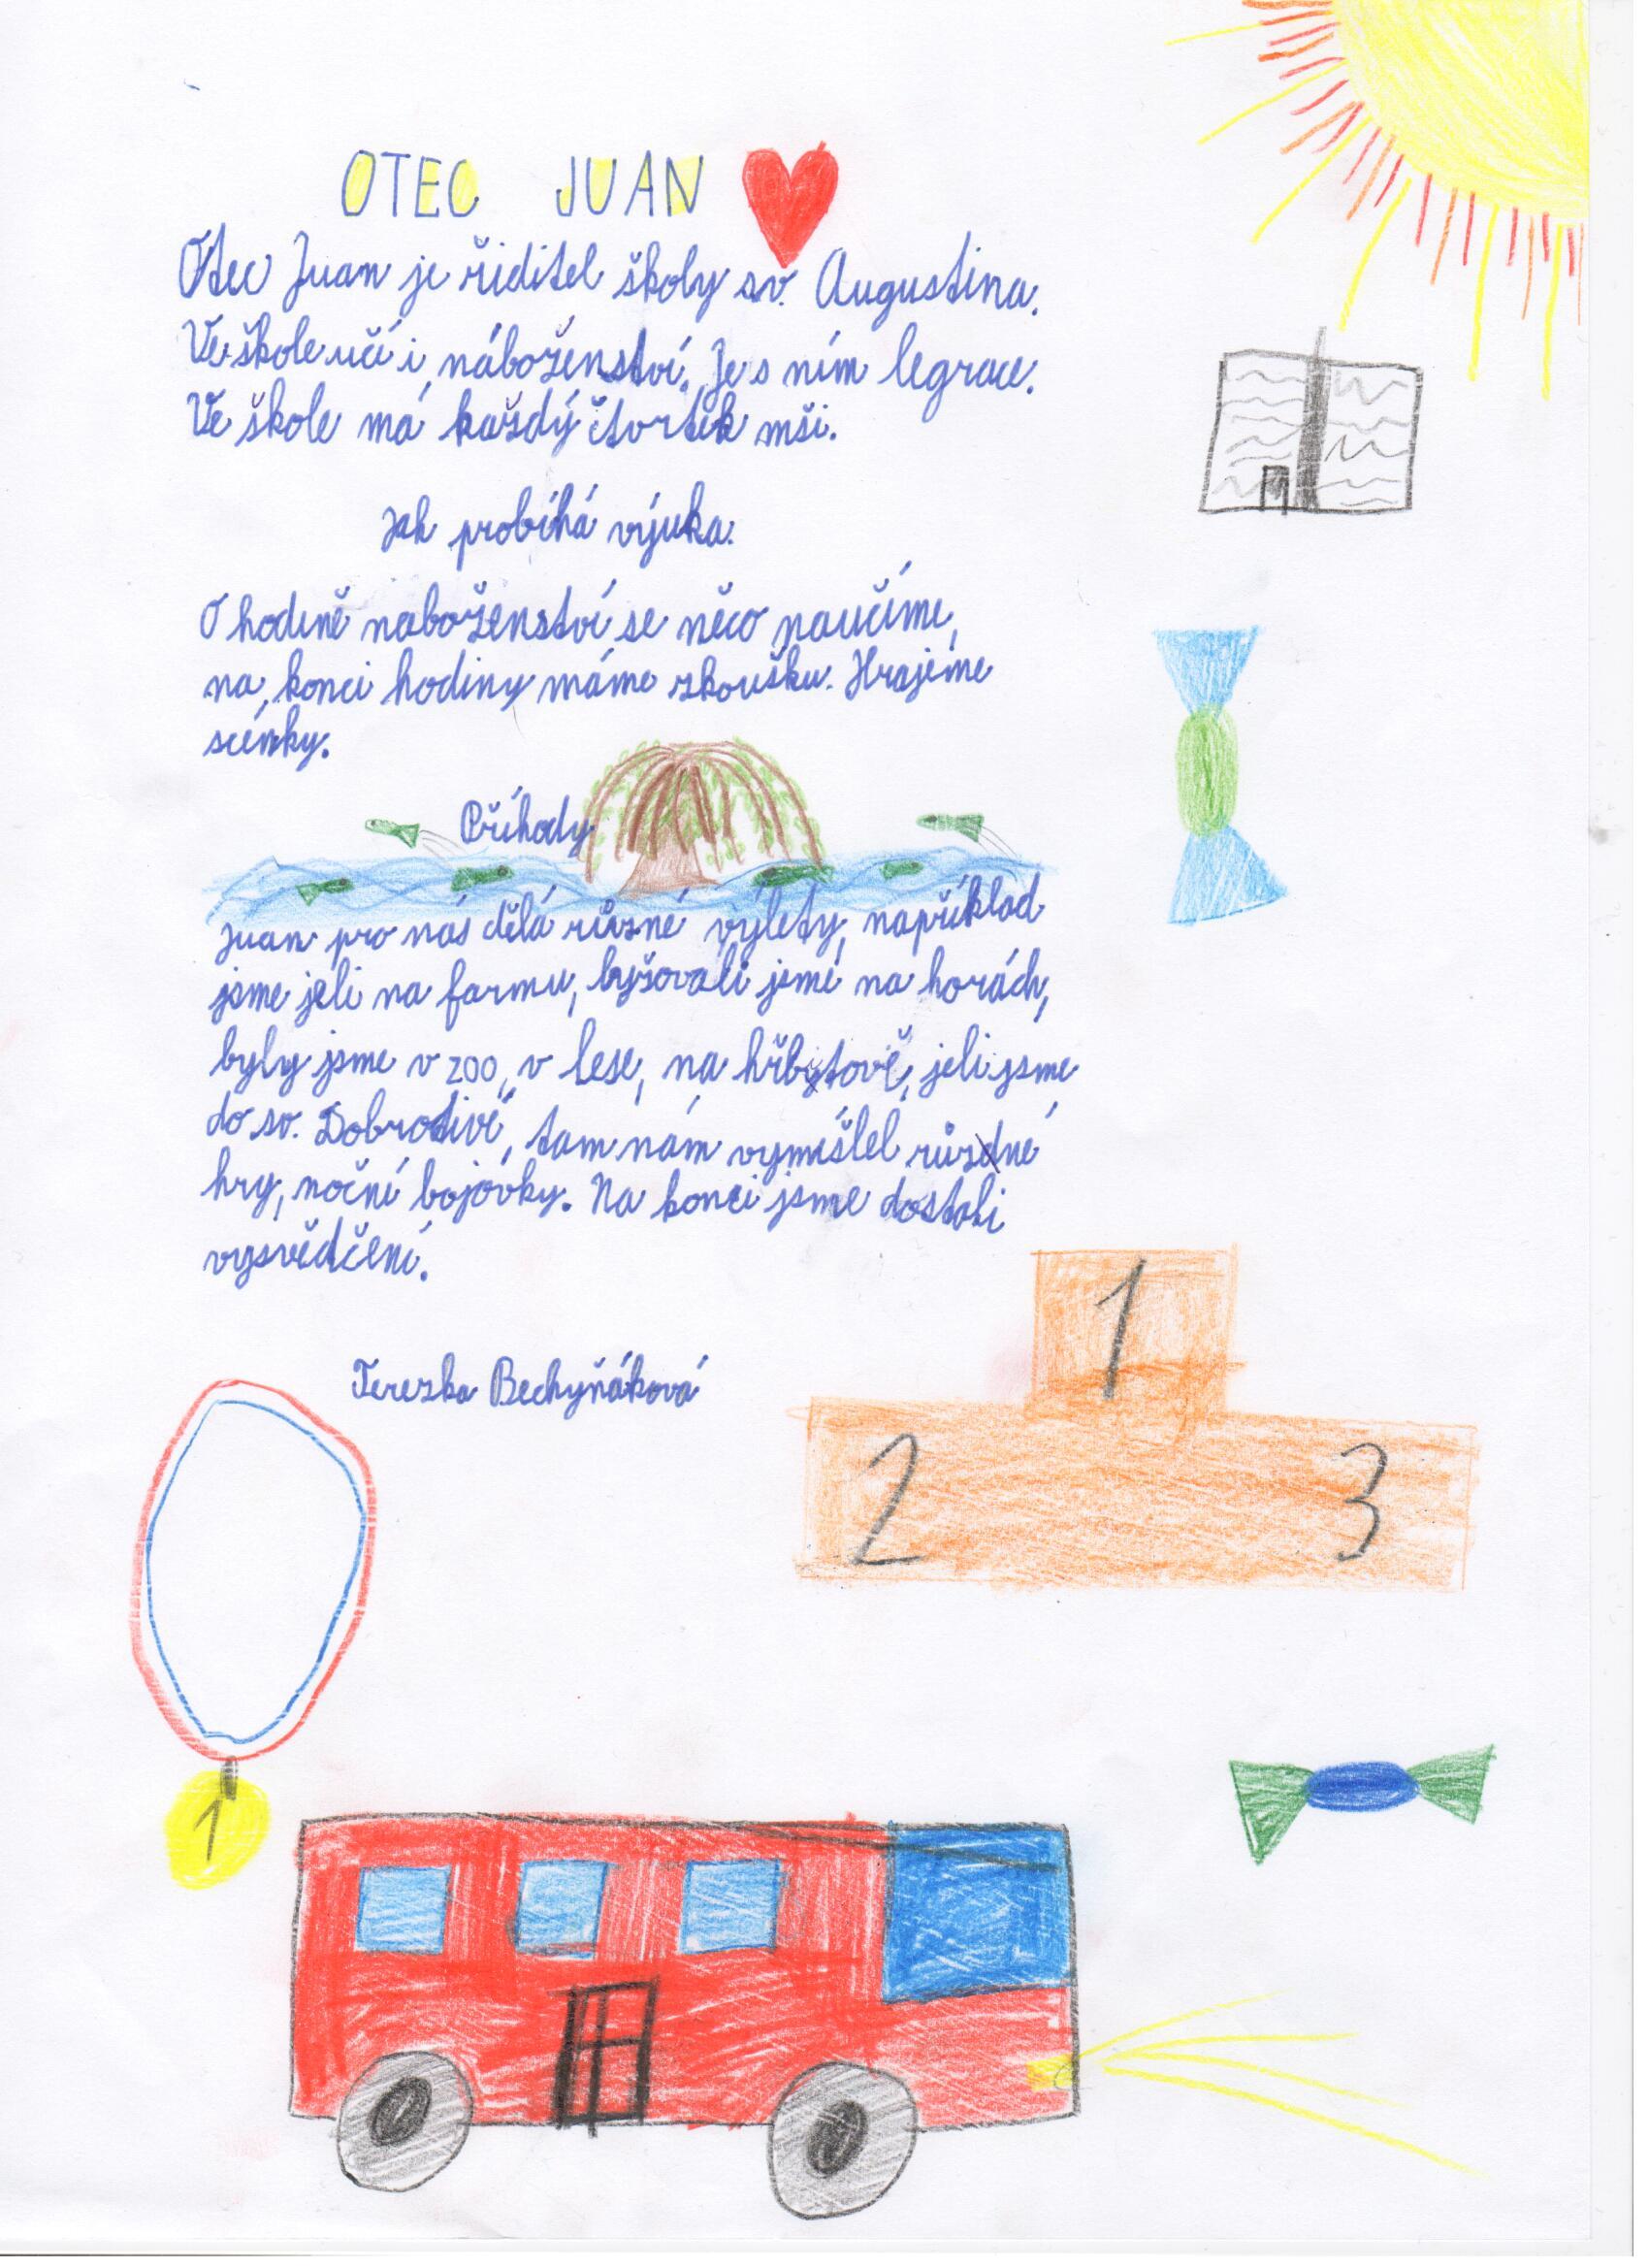 OTEC JUAN
Otec Juan je řiditel školy sv. Augustina.
Ve škole učí i náboženství. Je s ním legrace.
Ve škole má každý čtvrtek mši.
Jak probíhá výuka.
O hodině naboženství se něco naučíme,
na konci hodiny máme zkoušku. Hrajeme
scénky.
Příhody
Juan pro nás dělá různé výlety, například
jsme jeli na farmu, lyžovali jsme na horách,
byly jsme v ZOO, v lese, na hřbytově, jeli jsme
do sv. Dobrotivé, tam nám vymíšlel různé
hry, noční bojóvky. Na konci jsme dostali
vysvědčení.
Terezka Bechyňáková
1
2 3
1